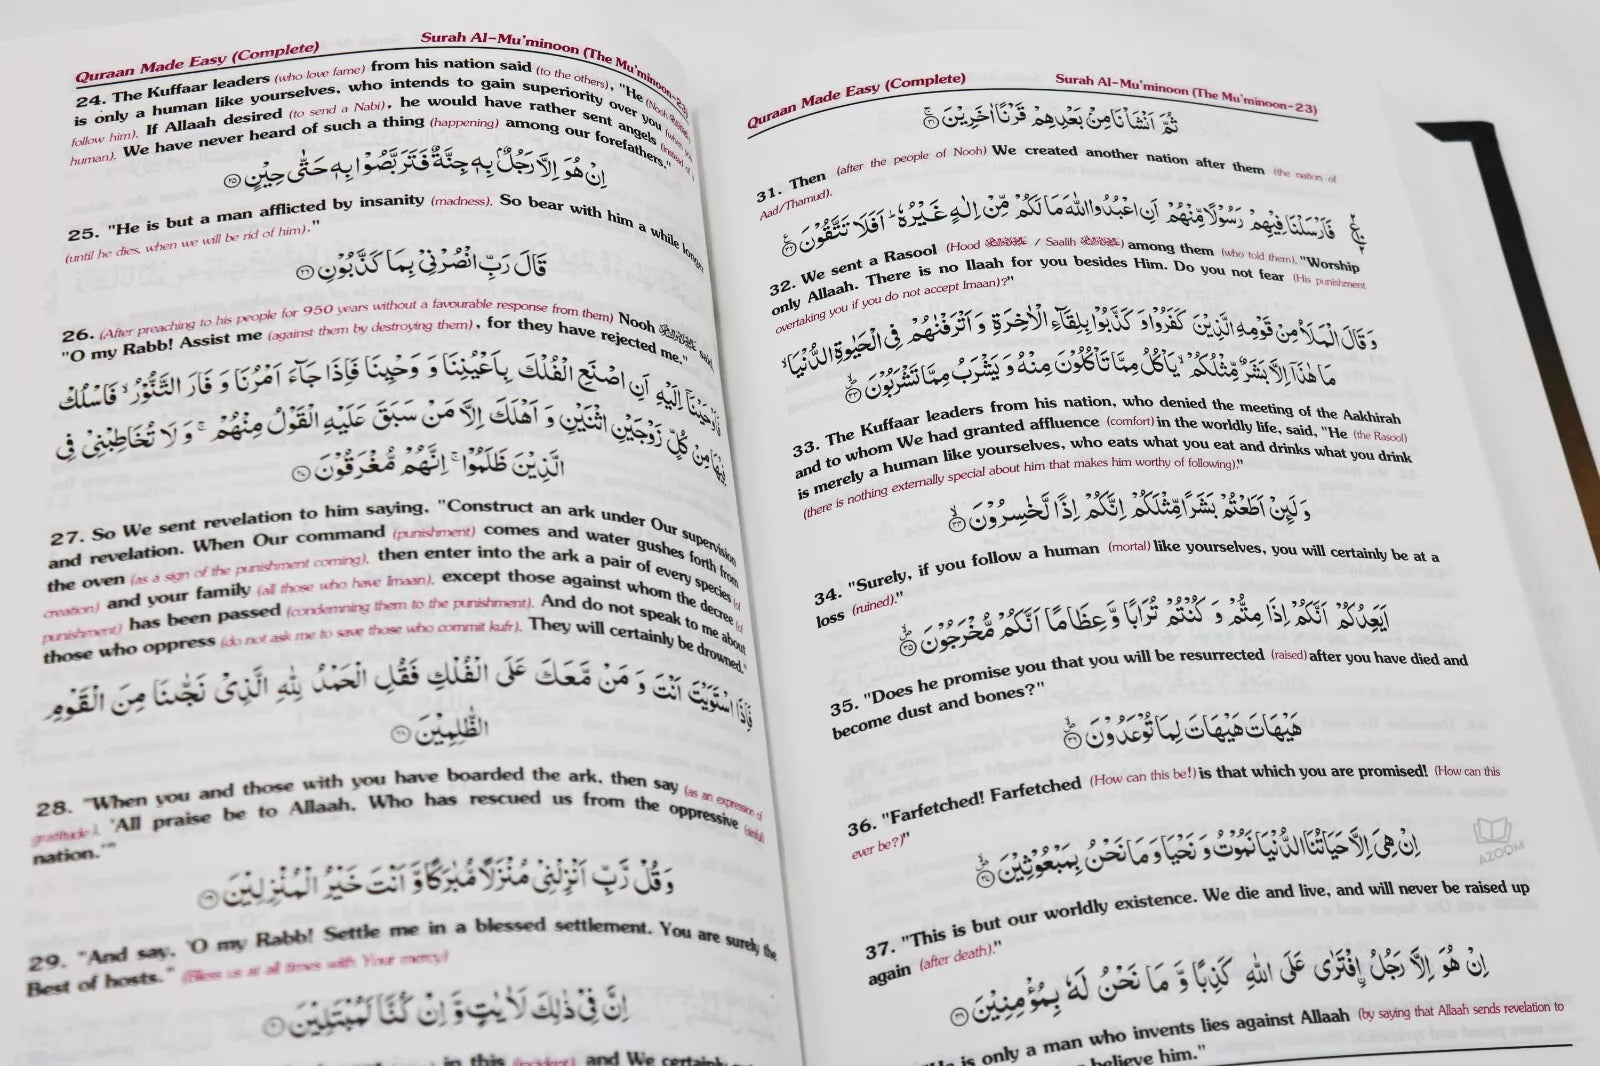 Quraan Made Easy (Complete) Surah Al-Mu'minoon (The Mu'minoon-23)
24. The Kuffaar leaders (who love fame) from his nation said (to the others), "He (Nooh
is only a human like yourselves, who intends to gain superiority over you
follow him). If Allaah desired (to send a Nabi), he would have rather sent angels (instead of
human). We have never heard of such a thing (happening) among our forefathers."
اِنْ هُوَ اِلَّا رَجُلٌۢ بِهٖ جِنَّةٌ فَتَرَبَّصُوْا بِهٖ حَتّٰى حِيْنٍ ٢٥
25. "He is but a man afflicted by insanity (madness). So bear with him a while longer
(until he dies, when we will be rid of him)."
قَالَ رَبِّ انْصُرْنِيْ بِمَا كَذَّبُوْنِ ٢٦
26. (After preaching to his people for 950 years without a favourable response from them) Nooh said,
"O my Rabb! Assist me (against them by destroying them), for they have rejected me."
فَاَوْحَيْنَآ اِلَيْهِ اَنِ اصْنَعِ الْفُلْكَ بِاَعْيُنِنَا وَ وَحْيِنَا فَاِذَا جَآءَ اَمْرُنَا وَ فَارَ التَّنُّوْرُ ۙ فَاسْلُكْ
فِيْهَا مِنْ كُلٍّ زَوْجَيْنِ اثْنَيْنِ وَ اَهْلَكَ اِلَّا مَنْ سَبَقَ عَلَيْهِ الْقَوْلُ مِنْهُمْ ۚ وَ لَا تُخَاطِبْنِيْ فِي
الَّذِيْنَ ظَلَمُوْا ۚ اِنَّهُمْ مُّغْرَقُوْنَ ٢٧
27. So We sent revelation to him saying, "Construct an ark under Our supervision
and revelation. When Our command (punishment) comes and water gushes forth from
the oven (as a sign of the punishment coming), then enter into the ark a pair of every species (of
creation) and your family (all those who have Imaan), except those against whom the decree (of
punishment) has been passed (condemning them to the punishment). And do not speak to me about
those who oppress (do not ask me to save those who commit kufr). They will certainly be drowned."
فَاِذَا اسْتَوَيْتَ اَنْتَ وَ مَنْ مَّعَكَ عَلَى الْفُلْكِ فَقُلِ الْحَمْدُ لِلّٰهِ الَّذِيْ نَجّٰىنَا مِنَ الْقَوْمِ
الظّٰلِمِيْنَ ٢٨
28. "When you and those with you have boarded the ark, then say (as an expression of
gratitude), 'All praise be to Allaah, Who has rescued us from the oppressive (sinful)
nation.'"
وَ قُلْ رَّبِّ اَنْزِلْنِيْ مُنْزَلًا مُّبٰرَكًا وَّ اَنْتَ خَيْرُ الْمُنْزِلِيْنَ ٢٩
29. "And say, 'O my Rabb! Settle me in a blessed settlement. You are surely the
Best of hosts." (Bless us at all times with Your mercy)
اِنَّ فِيْ ذٰلِكَ لَاٰيٰتٍ وَّ اِنْ كُنَّا لَمُبْتَلِيْنَ ٣٠
in this (incident), and We certainly
Quraan Made Easy (Complete) Surah Al-Mu'minoon (The Mu'minoon-23)
ثُمَّ اَنْشَاْنَا مِنْۢ بَعْدِهِمْ قَرْنًا اٰخَرِيْنَ ۚ ٣١
31. Then (after the people of Nooh) We created another nation after them (the nation of
Aad/Thamud).
فَاَرْسَلْنَا فِيْهِمْ رَسُوْلًا مِّنْهُمْ اَنِ اعْبُدُوا اللّٰهَ مَا لَكُمْ مِّنْ اِلٰهٍ غَيْرُهٗ ؕ اَفَلَا تَتَّقُوْنَ ٣٢
32. We sent a Rasool (Hood / Saalih) among them (who told them), "Worship
only Allaah. There is no Ilaah for you besides Him. Do you not fear (His punishment
overtaking you if you do not accept Imaan)?"
وَ قَالَ الْمَلَاُ مِنْ قَوْمِهِ الَّذِيْنَ كَفَرُوْا وَ كَذَّبُوْا بِلِقَآءِ الْاٰخِرَةِ وَ اَتْرَفْنٰهُمْ فِي الْحَيٰوةِ الدُّنْيَا ۙ
مَا هٰذَآ اِلَّا بَشَرٌ مِّثْلُكُمْ ۙ يَاْكُلُ مِمَّا تَاْكُلُوْنَ مِنْهُ وَ يَشْرَبُ مِمَّا تَشْرَبُوْنَ ٣٣
33. The Kuffaar leaders from his nation, who denied the meeting of the Aakhirah
and to whom We had granted affluence (comfort) in the worldly life, said, "He (the Rasool)
is merely a human like yourselves, who eats what you eat and drinks what you drink
(there is nothing externally special about him that makes him worthy of following)."
وَ لَئِنْ اَطَعْتُمْ بَشَرًا مِّثْلَكُمْ اِنَّكُمْ اِذًا لَّخٰسِرُوْنَ ٣٤
34. "Surely, if you follow a human (mortal) like yourselves, you will certainly be at a
loss (ruined)."
اَيَعِدُكُمْ اَنَّكُمْ اِذَا مِتُّمْ وَ كُنْتُمْ تُرَابًا وَّ عِظَامًا اَنَّكُمْ مُّخْرَجُوْنَ ٣٥
35. "Does he promise you that you will be resurrected (raised) after you have died and
become dust and bones?"
هَيْهَاتَ هَيْهَاتَ لِمَا تُوْعَدُوْنَ ٣٦
36. "Farfetched! Farfetched (How can this be!) is that which you are promised! (How can this
ever be?)"
اِنْ هِيَ اِلَّا حَيَاتُنَا الدُّنْيَا نَمُوْتُ وَ نَحْيَا وَ مَا نَحْنُ بِمَبْعُوْثِيْنَ ٣٧
37. "This is but our worldly existence. We die and live, and will never be raised up
again (after death)."
اِنْ هُوَ اِلَّا رَجُلُ اِ۟فْتَرٰى عَلَى اللّٰهِ كَذِبًا وَّ مَا نَحْنُ لَهٗ بِمُؤْمِنِيْنَ ٣٨
is only a man who invents lies against Allaah (by saying that Allaah sends revelation to
believe him."
AZOOM